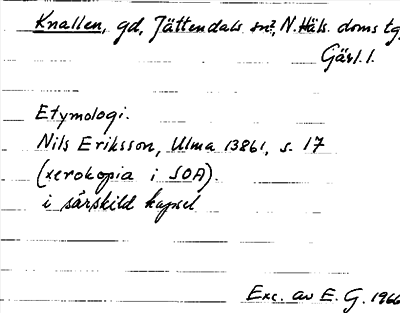 Knallen, gd, Jättendals sn, N. Häls. doms tg,
Gävl. l.
Etymologi.
Nils Eriksson, Ulma 13861, s. 17
(xerokopia i SOA).
i särskild kapsel
Exc. av E. G. 1966